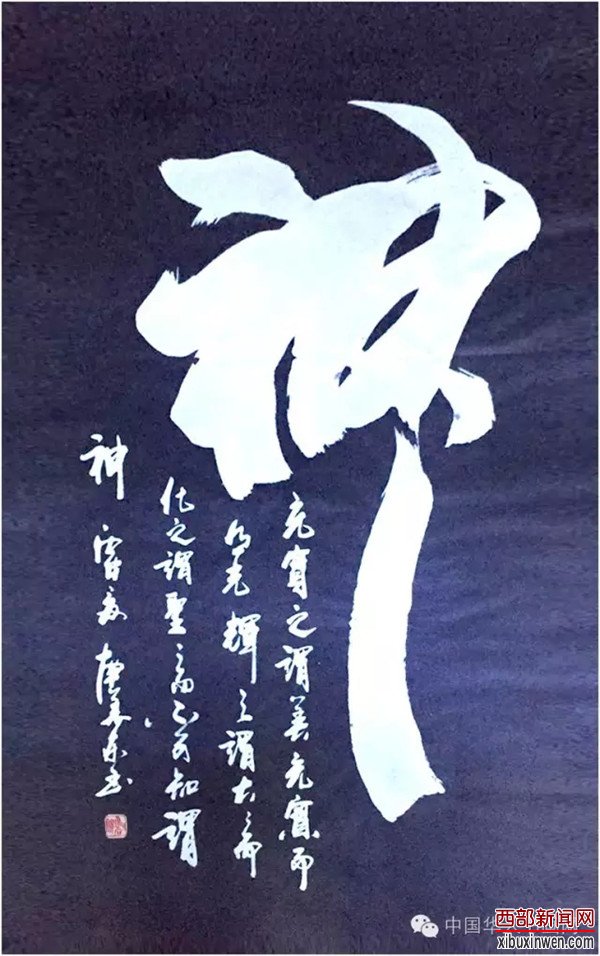 神
充實之謂美充實而
有光輝之謂大〻而
化之謂聖〻而不可知謂
神
中国华
西部新闻网
xibuxinwen.com